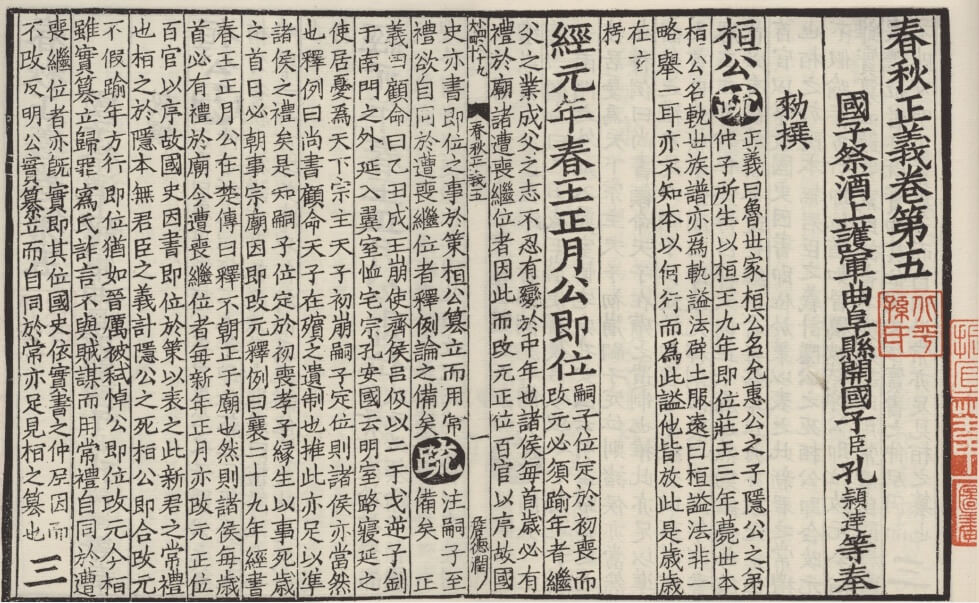 春秋正義卷第五
國子祭酒上護軍曲阜縣開國子臣孔穎達等奉
勑撰
桓公疏正義曰魯世家桓公名允惠公之子隱公之弟
仲子所生以桓王九年即位莊王三年薨世本
桓公名軌世族譜亦為軌謚法辟土服遠曰桓謚法非
略舉一耳亦不知本以何行而為此謚他皆放此是歲歲
在玄
枵
經元年春王正月公即位嗣子位定於初喪而
改元必須踰年者繼
父之業成父之志不忍有變於中年也諸侯每首歲必有
禮於廟諸遭喪繼位者因此而改元正位百官以序故國
春秋正義五 一 詹德潤
史亦書即位之事於策桓公簒立而用常
禮欲自同於遭喪繼位者釋例論之備矣
疏注嗣子至
備矣 正
義曰顧命曰乙丑成王崩使齊侯呂伋以二干戈逆子釗
于南門之外延入翼室恤宅宗孔安國云明室路寢延之
使居憂為天下宗主天子初崩嗣子定位則諸侯亦當然
也釋例曰尚書顧命天子在殯之遺制也推此亦足以準
諸侯之禮矣是知嗣子位定於初喪孝子緣生以事死歲
之首日必朝事宗廟因即改元釋例曰襄二十九年經書
春王正月公在楚傳曰釋不朝正于廟也然則諸侯每歲
首必有禮於廟今遭喪繼位者每新年正月亦改元正位
百官以序故國史因書即位於策以表之此新君之常禮
也桓之於隱本無君臣之義計隱公之死桓公即合改元
不假踰年方行即位猶如晉厲被弒悼公即位改元今桓
雖實簒立歸罪寪氏詐言不與賊謀而用常禮自同於遭
喪繼位者亦既實即其位國史依實書之仲尼因而
不改反明公實簒立而自同於常亦足見桓之簒也
三
北平
孫氏